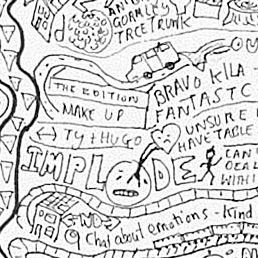 GORMLEY
TREE TRUNK
THE EDITION
MAKE UP
BRAVO KILA
FANTASTC
<-> TY + HUGO
UNSURE
HAVE TABLE
IMPLODE
CAN
DEAL
WITH
AND
Chat about emotions - Kind